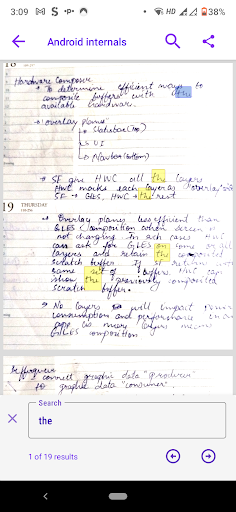 3:09
38%
Android internals
18
Hardware Composer
To determine efficient ways to
composite buffers with the
available hardware.
"overlay planes"
Statusbar (top)
UI
Navbar (bottom)
SF give HWC all the layers
HWC marks each layer as "overlay" or
SF → GLES, HWC → the rest
19 THURSDAY
Overlay planes less efficient than
GLES composition when screen is
not changing. In such cases HWC
can ask for GLES on some or all
layers and retain the composited
scratch buffer. If SF returns with
same set of buffers, HWC can
show the previously composited
scratch buffer.
No. layers will impact power
consumption and performance
more layers means
GLES composition
connect graphic data "producer"
to graphic data "consumer".
Search
the
1 of 19 results